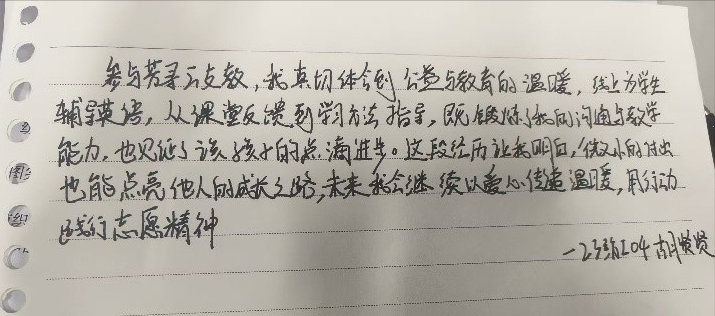 参与芳草云支教，我真切体会到公益与教育的温暖，线上为学生
辅导英语，从课堂反馈到学习方法指导，既锻炼了我的沟通与教学
能力，也见证了该孩子的点滴进步。这段经历让我明白，微小的付出
也能点亮他人的成长之路，未来我会继续以爱心传递温暖，用行动
践行志愿精神
胡贤贤